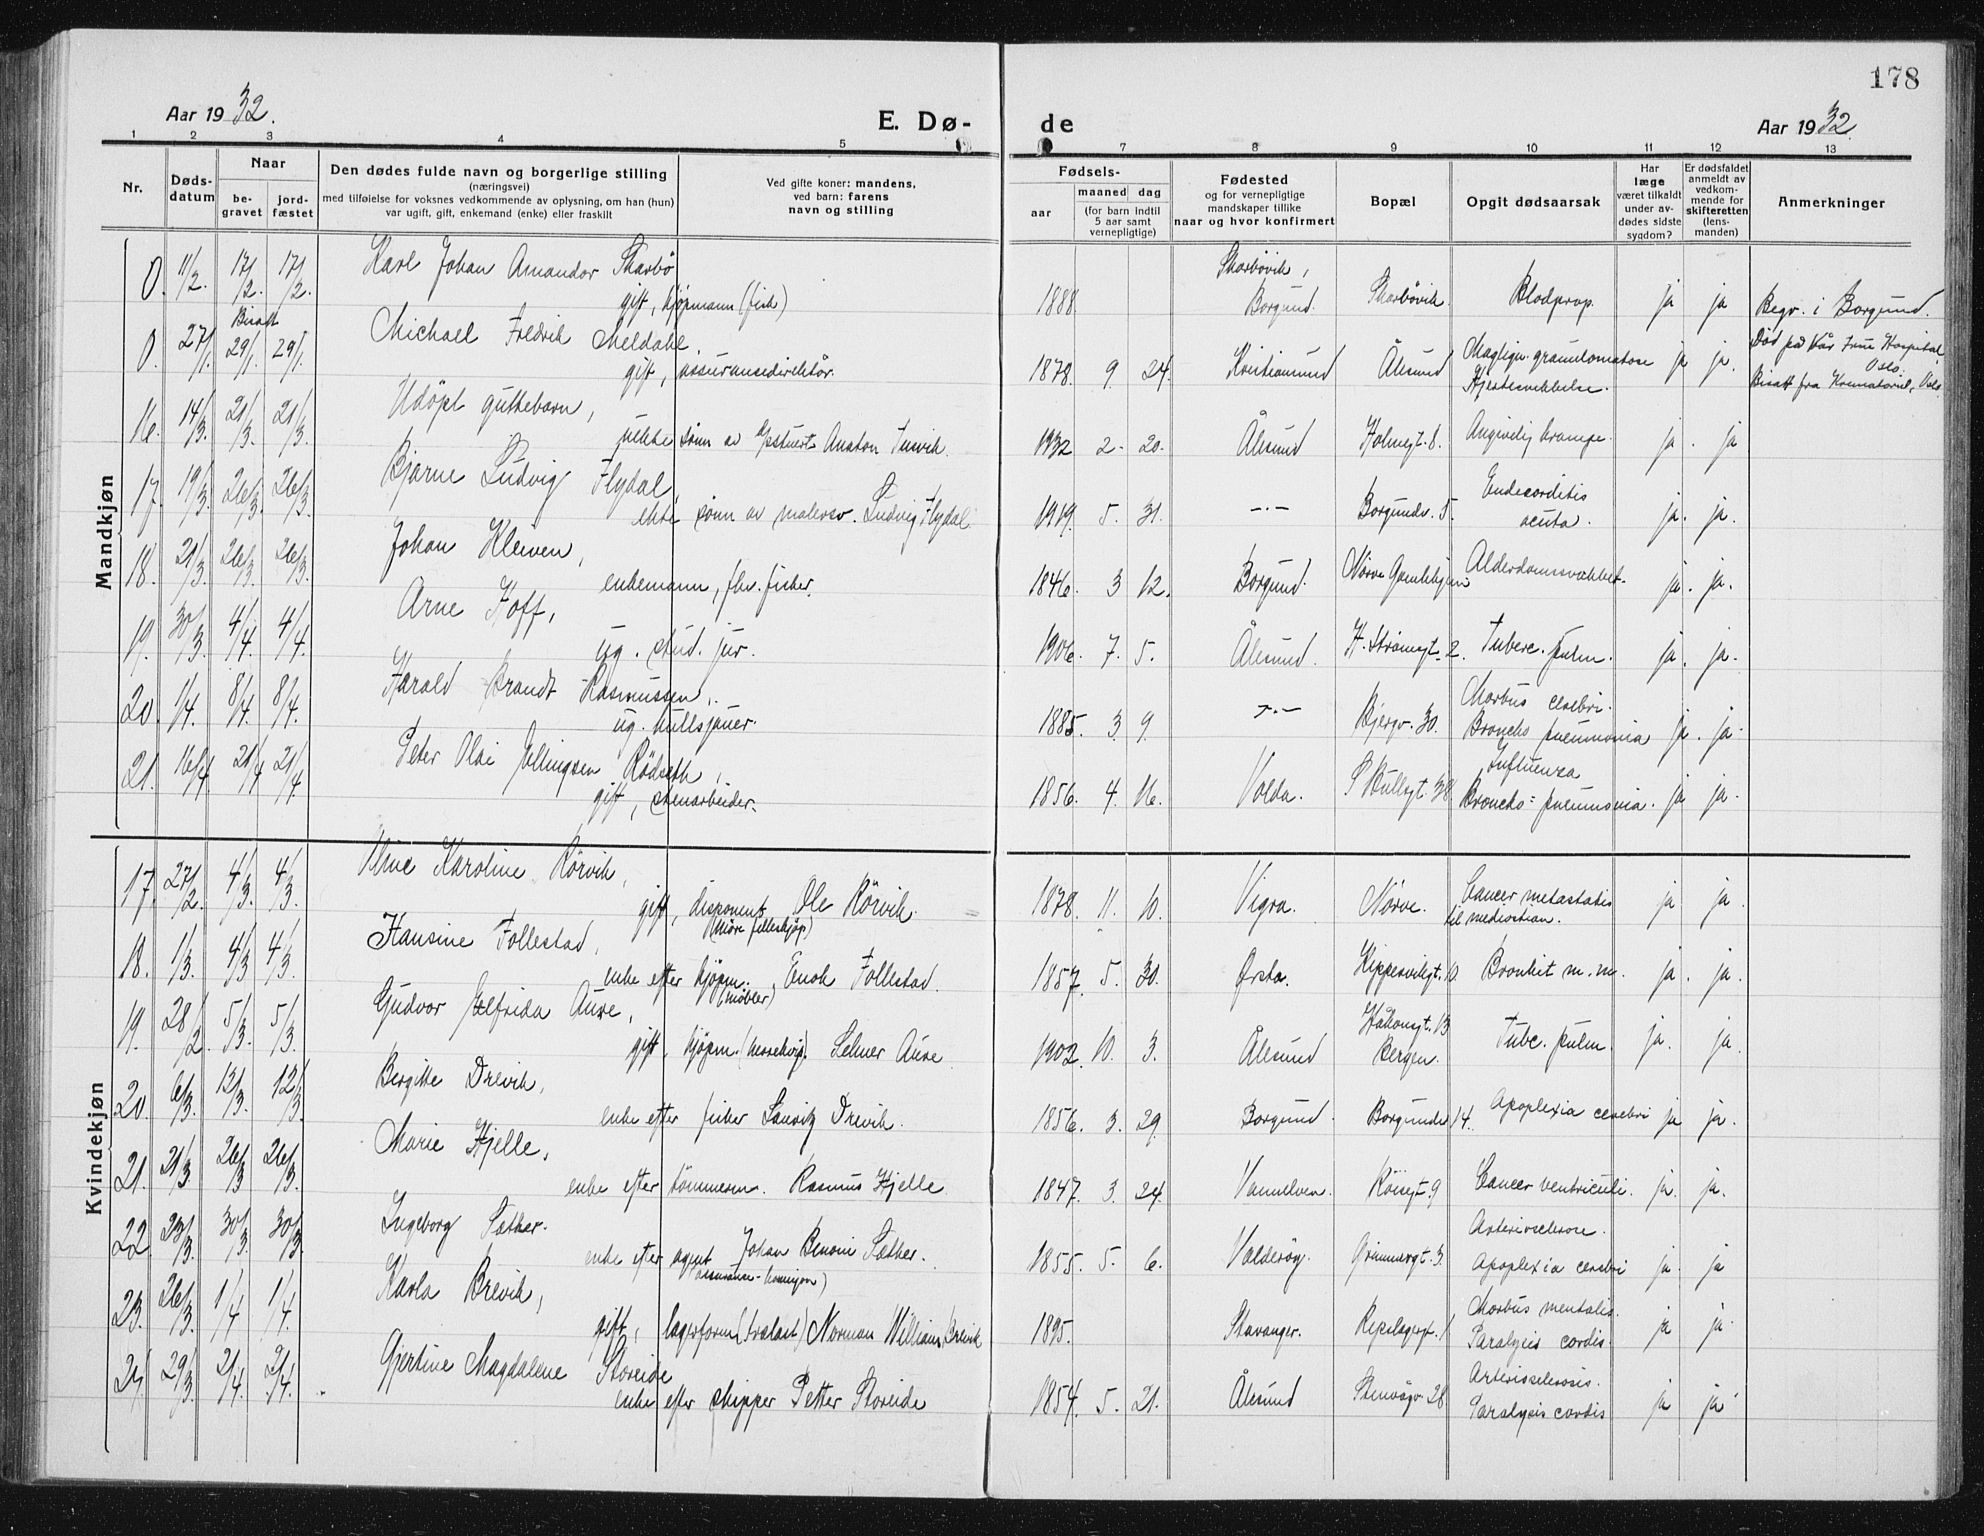 178
Aar 1932.
E. Dø-
de
Aar 1932.
1 2 3 4 5 7 8 9 10 11 12 13
Nr.
Døds-
datum
Naar
be-
gravet
jord-
fæstet
Den dødes fulde navn og borgerlige stilling
(næringsvei)
med tilføielse for voksnes vedkommende av oplysning, om han (hun)
var ugift, gift, enkemand (enke) eller fraskilt
Ved gifte koner: mandens,
ved barn: farens
navn og stilling
Fødsels-
aar
maaned dag
(for barn indtil
5 aar samt
vernepligtige)
Fødested
og for vernepligtige
mandskaper tillike
naar og hvor konfirmert
Bopæl
Opgit dødsaarsak
Har
læge
været tilkaldt
under av-
dødes sidste
sygdom?
Er dødsfaldet
anmeldt av
vedkom-
mende for
skifteretten
(lens-
manden)
Anmerkninger
Mandkjøn
0. 11/2. 17/2. 17/2. Karl Johan Amandor Skarbö
gift, kjøpmann (fisk)
1888. Skarbövik, Borgund. Skarbövik Blodprop. ja ja Begr. i Borgund.
Bisatt
0. 27/1. 29/1. 29/1. Michael Fredrik Meldahl,
gift, assuransedirektör.
1878. 9. 24. Kristiansund Ålesund granulomatose Hjertesvekkelse. ja ja. Död på Vår Frue Hospital Oslo.
Bisatt fra Krematoriet, Oslo
16. 14/3. 21/3. 21/3. Udöpt guttebarn,
uekte sönn av
1932 2. 20. Ålesund Holmegt. 8. Angivelig krampe. ja. ja
17. 19/3. 26/3. 26/3. Bjarne Ludvig Flydal,
ekte sönn av malersv. Ludvig Flydal
1919. 5. 31. -"- Borgundv. 5. Endocarditis acuta. ja. ja.
18. 21/3. 26/3. 26/3. Johan Kleiven,
enkemann, fhv. fisker.
1846. 3 12. Borgund. Nörve Gamlehjem Alderdomssvekket. ja. ja.
19. 30/3. 4/4. 4/4. Arne Hoff,
ug. stud. jur.
1906. 7. 5. Ålesund. H. Strömsgt. 2. Tuberc. pulm. ja. ja.
20. 1/4. 8/4. 8/4. Harald Brandt Rasmussen,
ug.
1885. 3. 9. -"- Bjergv. 30. Morbus cerebri. Broncho pneumonia ja. ja.
21. 16/4. 21/4 21/4. Peter Olai Ellingsen Rödseth,
gift, stenarbeider.
1856. 4. 16. Volda. Influenza Broncho-pneumonia. ja ja.
Kvindekjøn
17. 27/2. 4/3. 4/3. Karoline Rörvik,
gift, disponent Ole Rörvik.
(Möre felleskjöp)
1878. 11. 10. Vigra. Nörve. Cancer metastatis til mediastian. ja ja.
18. 1/3. 4/3 4/3. Hansine Follestad,
enke efter kjöpm. Enok Follestad.
(möbler)
1857. 5. 30. Ørsta. Kippervikgt. 10. Bronkit m. m. ja. ja.
19. 28/2. 5/3. 5/3. Gudvor Alfrida Aure,
gift, kjöpm. (herrekvip. Selmer Aure
1902. 10. 3. Ålesund Håkonsgt. 13 Bergen. Tubc. pulm. ja. ja.
20. 6/3. 12/3. 12/3. Birgitte Drevik,
enke efter fisker Drevik.
1856. 3. 29. Borgund. Borgundv 14. Apoplexia cerebri ja ja.
21. 21/3. 26/3 26/3. Marie Hjelle,
enke efter tömmerm. Rasmus Hjelle
1847. 3. 24. Vanelven. Röisgt. 9 Cancer ventriculi. ja. ja.
22 23/3. 30/3. 30/3. Ingeborg Sæther.
enke efter agent Johan Benoni Sæther.
1855. 5. 6. Valderöy. Grimmergt. 3. Arteriosclerose. Apoplexia cerebri ja. ja
23. 26/3. 1/4 1/4. Karla Brevik,
gift, lagerform. (trælast) Norman William Brevik
1895. Stavanger. Repslagergt. 1 Morbus mentalis. Paralysis cordis. ja ja
24. 29/3. 2/4. 2/4. Gjertine Magdalene Storeide
enke efter skipper Petter Storeide
1854. 5. 21. Ålesund Stenvågv. 28. Arteriosclerosis. Paralysis cordis ja ja